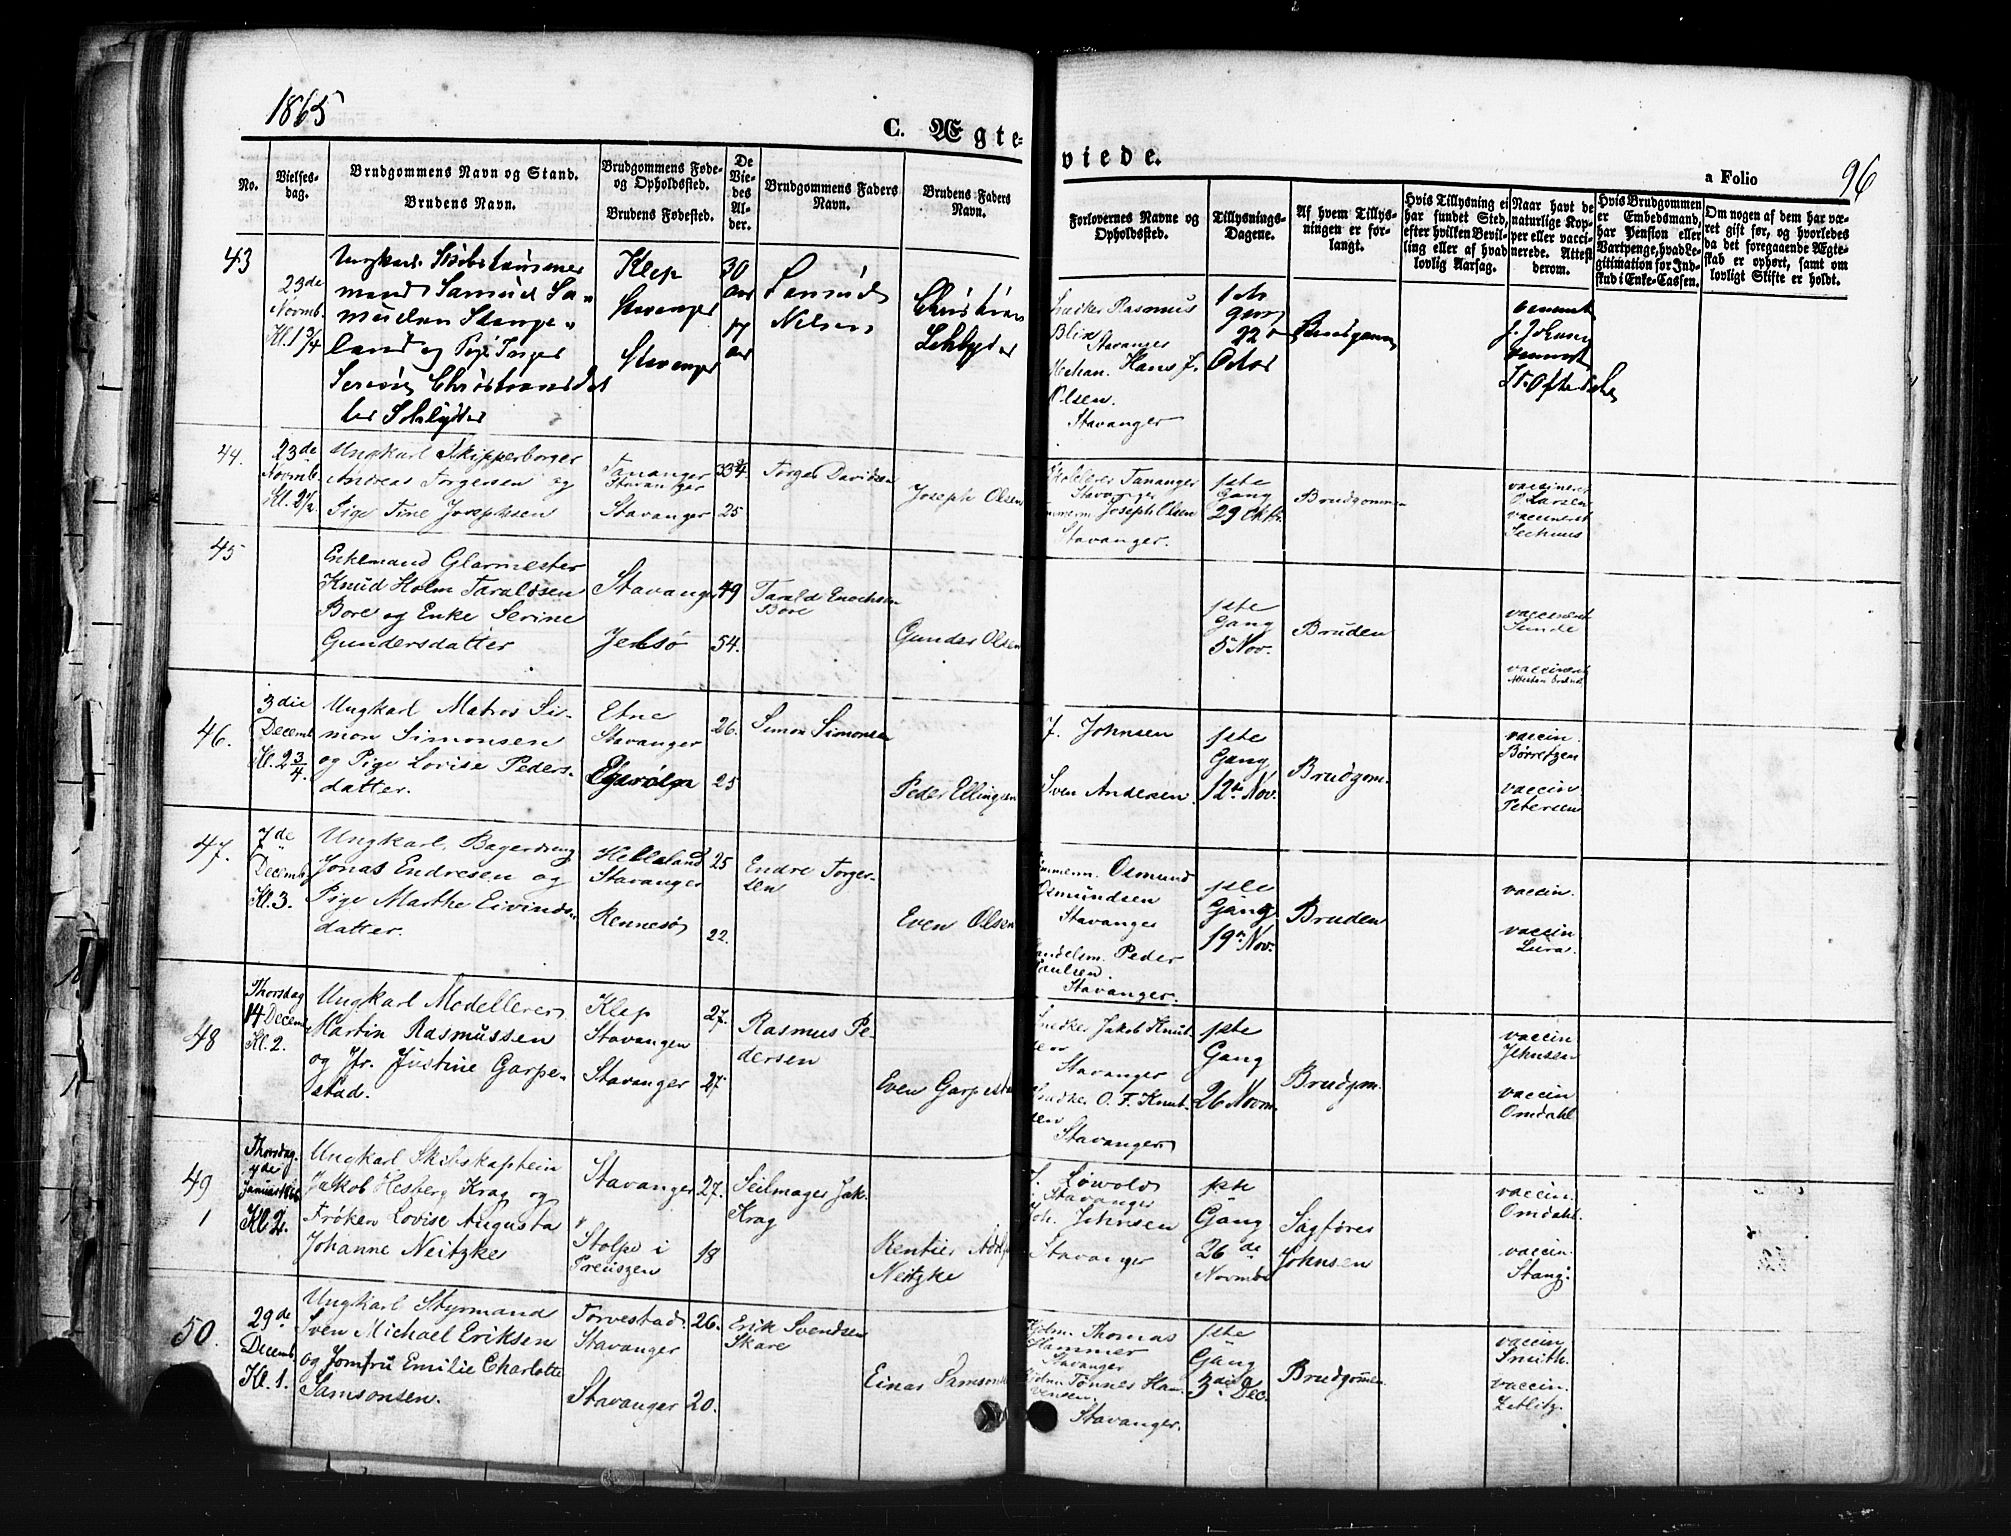 1865
C. Ægte-
viede.
a Folio
96
No.
Vielses-
dag.
Brudgommens Navn og Stand.
Brudens Navn.
Brudgommens Føde-
og Opholdssted.
Brudens Fødested.
De
Vie-
des
Al-
der.
Brudgommens Faders
Navn.
Brudens Faders
Navn.
Forlovernes Navne og
Opholdssted.
Tillysnings-
Dagene.
Af hvem Tillys-
ningen er for-
langt.
Hvis Tillysning ei
har fundet Sted,
efter hvilken Bevil-
ling eller af hvad
lovlig Aarsag.
Naar havt de
naturlige Kop-
per eller vacci-
nerede. Attest
derom.
Hvis Brudgommen
er Embedsmand,
har Pension eller
Vartpenge, hvad Le-
gitimation for Ind-
skud i Enke-Cassen.
Om nogen af dem har væ-
ret gift før, og hvorledes
da det foregaaende Ægte-
skab er ophørt, samt om
lovligt Skifte er holdt.
43
23de
Novmb.
Kl. 1 3/4
Ungkarl
Samuel Sa-
muelsen Stange-
land og Pige Inger
Serine
Klep
Stavanger
Stavanger
30
aar
17
aar
Samuel
Nielsen
Christian
Snedker Rasmus
Blix
Stavanger
Hans J.
Olsen.
Stavanger
1ste
gang
22
Octor
Brudgommen
44.
23de
Novmb.
Kl. 2 1/2
Ungkarl Skipperborger
Andreas Torgersen og
Pige Tine Josephsen
Tananger
Stavanger
Stavanger
33 3/4
25
Torger Davidsen
Joseph Olsen
Tananger
Stavanger
Joseph Olsen
Stavanger.
1ste
Gang
29 Oktr.
Brudgommen
vaccineret
O Larsen
vaccineret
45
Enkemand Glarmester
Knud Holm Taraldsen
Bore og Enke Serine
Gundersdatter
Stavanger
Jelsø
49
54.
Tarald Enochsen
Bore
Gunder Olsen
1ste
Gang
5 Nov.
Bruden
vaccineret
Sunde
vaccineret
46.
3die
Decemb.
Kl. 2 3/4
Ungkarl Matros Si-
mon Simonsen
og Pige Lovise Peders-
datter.
Etne
Stavanger
26.
25
Simon Simonsen
Peder Ellingsen
J. Johnsen
Sven Andersen
1ste
Gang
12te Nov.
Brudgom.
vaccin.
Børretzen
vaccin
Petersen
47.
7de
Decemb.
Kl. 3.
Ungkarl, Bagerdreng
Jonas Endresen og
Pige Marthe Eivinds-
datter.
Helleland
Stavanger
Rennesø
25
22.
Endre Torger-
sen
Even Olsen
Tømmerm. Osmund
Osmundsen
Stavanger
Handelsm. Peder
Paulsen.
Stavanger.
1ste
Gang
19de Nov.
Bruden
vaccin.
vaccin
Lura.
48
Thorsdag
14 Decemb.
Kl. 2.
Ungkarl Modellerer
Martin Rasmussen
og Jfr. Justine Garpe-
stad.
Klep
Stavanger
Stavanger
27.
27.
Rasmus Pe-
dersen
Even Garpestad
Snedker Jakob Knut-
sen
Stavanger
Snedker O. F. Knut-
sen
Stavanger.
1ste
Gang
26 Novm.
Brudgm.
vaccin
Johnsen
vaccin
Omdahl
49
1
Thorsdag
4de
Januar 1866
Kl. 2.
Ungkarl Skibskaptein
Jakob Hesberg Krag og
Frøken Lovise Augusta
Johanne Neitzke
Stavanger
Stolpe i
Preuszen
27.
18
Seilmager Jak.
Krag
Rentier Adolph
Neitzke
T. Løwold
Stavanger
Joh. Johnsen
Stavanger
1ste
Gang
26de
Novmbr
Sagfører
Johnsen
vaccin.
Omdahl.
vaccin.
Stang.
50.
29de
Decemb.
Kl. 1.
Ungkarl Styrmand
Sven Michael Eriksen
og Jomfru Emilie Charlotte
Samsonsen.
Torvestad.
Stavanger
Stavanger
26.
20.
Erik Svendsen
Skare
Einar Samsonsen
Thomas
Hammer
Stavanger
Tønnes Hau-
vensen
Stavanger.
1ste
Gang
3die Dec.
Brudgommen
vaccin
Smith.
vaccin.
Zetlitz.